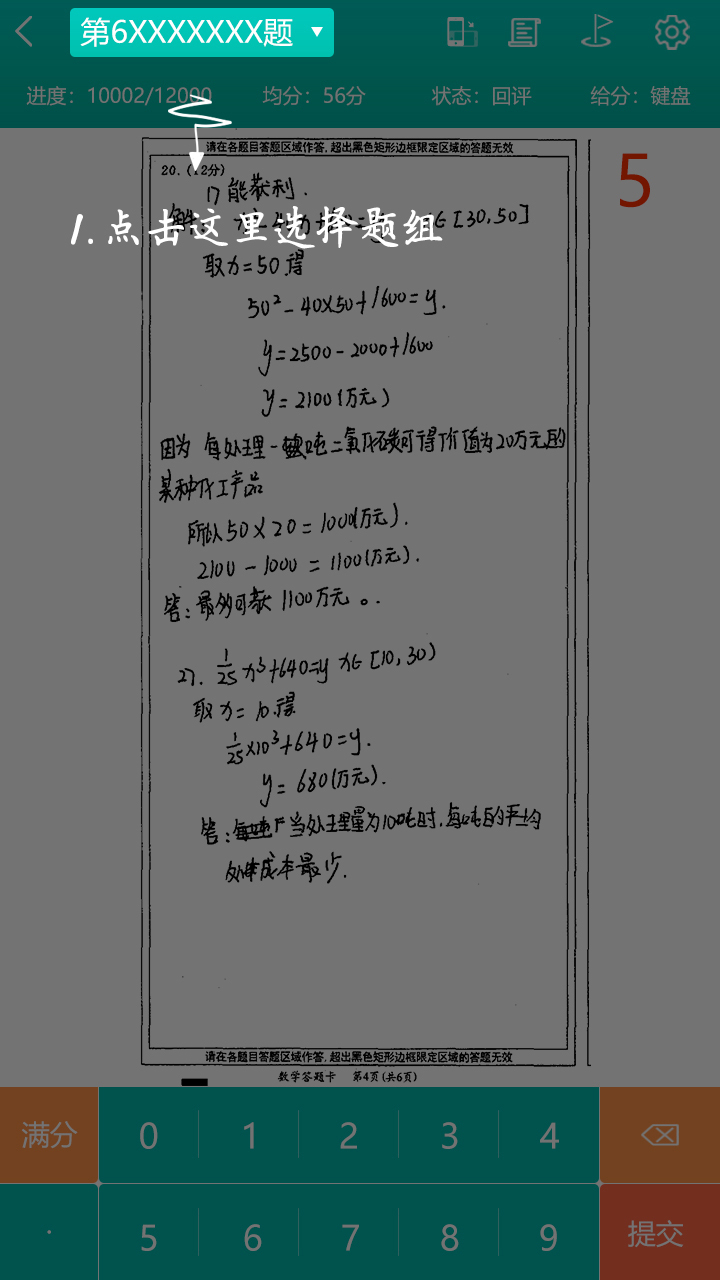 第6XXXXXXX题
进度：10002/12000 均分：56分 状态：回评 给分：键盘
请在各题目答题区域作答，超出黑色矩形边框限定区域的答题无效
5
20.（12分）
1）能获利.
1.点击这里选择题组
∈[30,50]
取x=50.得
50²-40×50+1600=y.
y=2500-2000+1600
y=2100(万元)
因为 每处理一吨二氧化碳可得价值为20万元的
某种化工产品
所以50×20=1000(万元).
2100-1000=1100(万元).
答：最多可获1100万元。.
2). 1/25x³+640=y x∈[10,30)
取x=10.得
1/25×10³+640=y.
y=680(万元).
答：当处理量为10吨时.每吨的平均
成本最少.
请在各题目答题区域作答，超出黑色矩形边框限定区域的答题无效
数学答题卡 第4页(共6页)
满分 0 1 2 3 4
. 5 6 7 8 9 提交